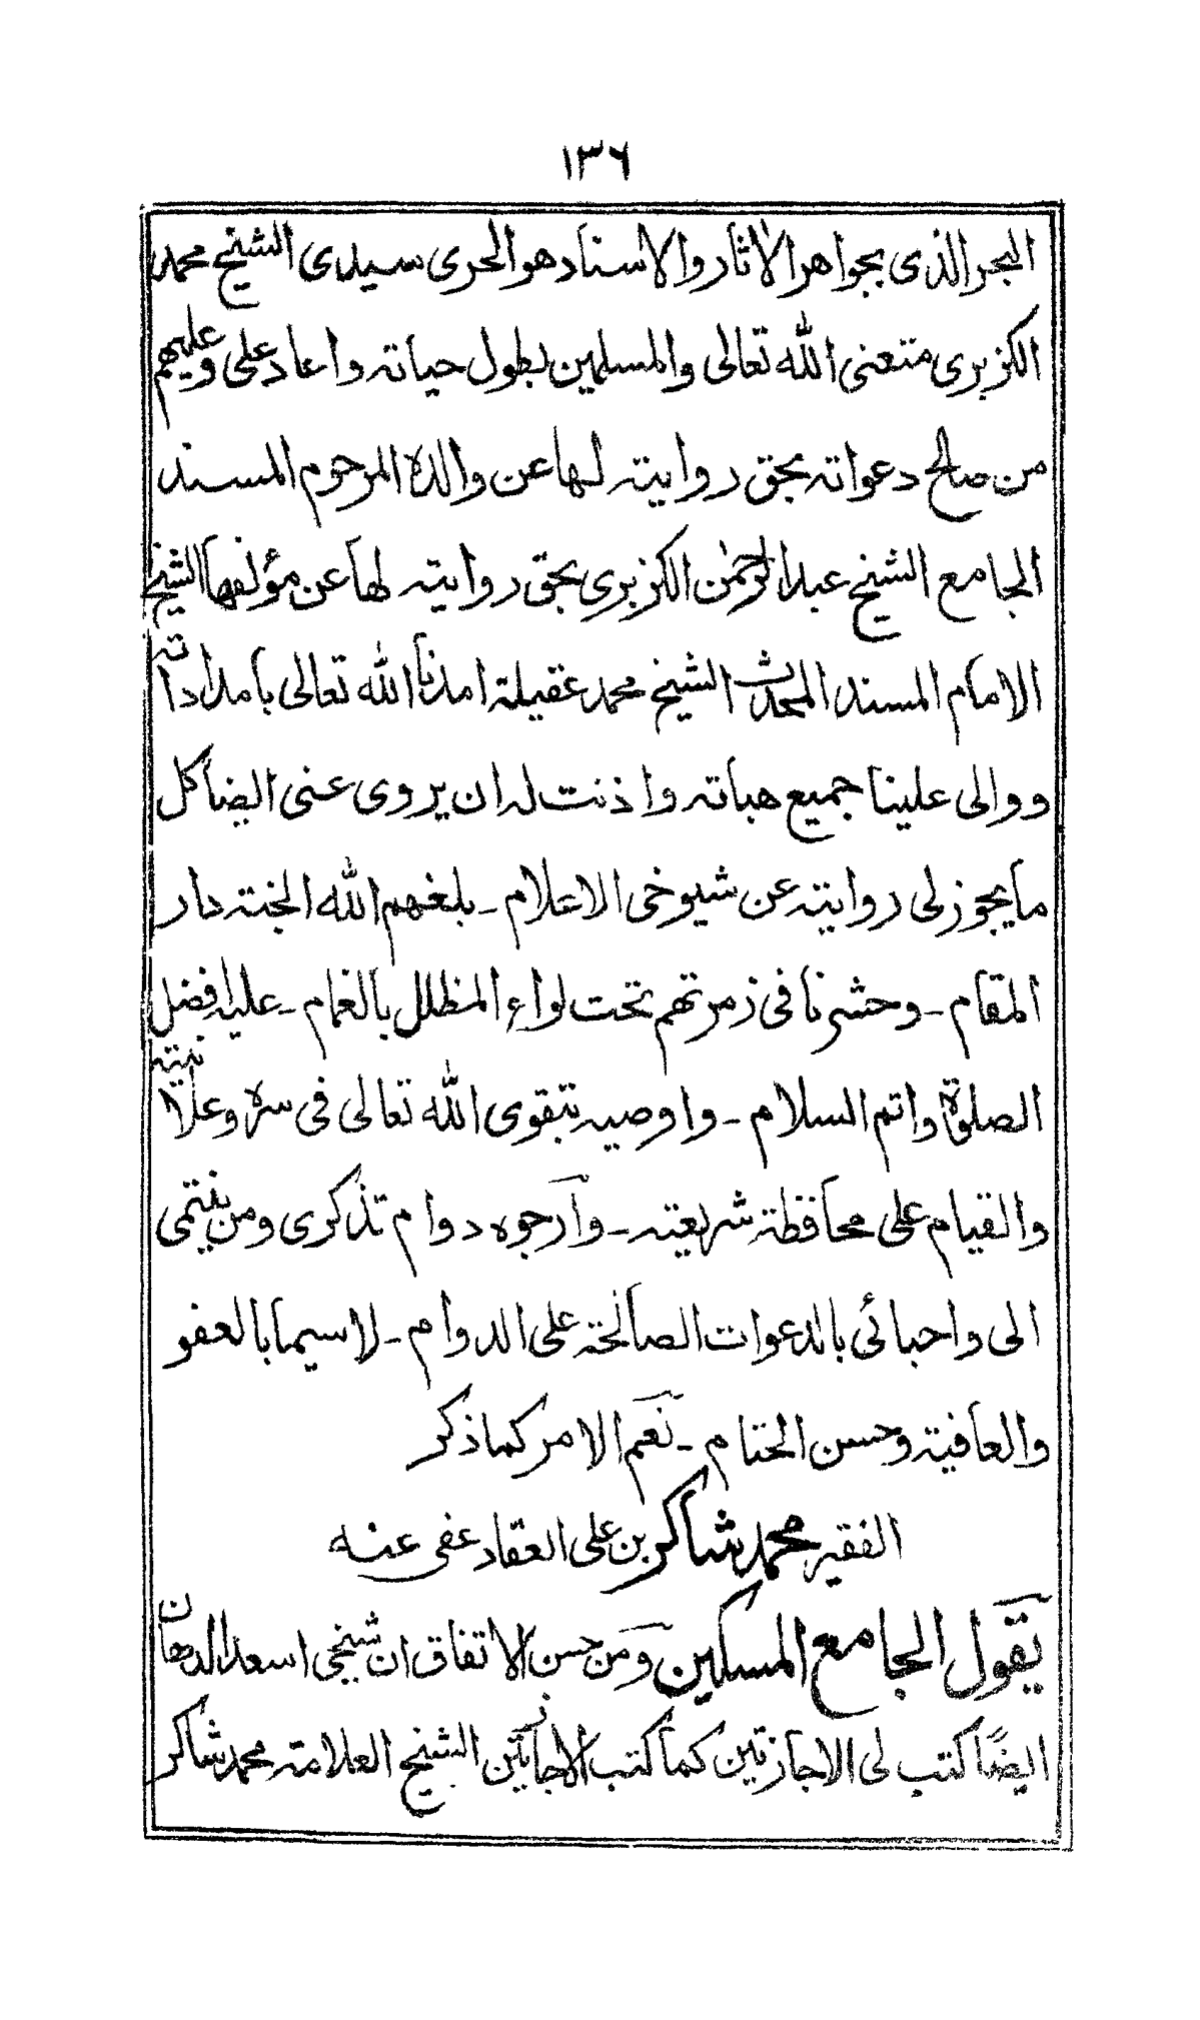 ١٣٦
البحر الذی بجواهر الاثار والاسناد هو الحری سیدی الشیخ محمد
الکزبری متعنی الله تعالی والمسلمین بطول حیاته واعاد علی وعلیهم
من صالح دعواته بحق روایته لها عن والده المرحوم المسند
الجامع الشیخ عبد الرحمٰن الکزبری بحق روایته لها عن مؤلفها الشیخ
الامام المسند المحدث الشیخ محمد عقیلة امدنا الله تعالی بامداداته
ووالی علینا جمیع هباته واذنت له ان یروی عنی ایضا کل
ما یجوز لی روایته عن شیوخی الاعلام ـ بلغهم الله الجنة دار
المقام ـ وحشرنا فی زمرتهم تحت لواء المظلل بالغمام ـ علیه افضل
الصلوٰة واتم السلام ـ واوصیه بتقوی الله تعالی فی سره وعلانیته
والقیام علی محافظة شریعته ـ وارجوه دوام تذکری ومن ینتمی
الی واحبائی بالدعوات الصالحة علی الدوام ـ لاسیما بالعفو
والعافیة وحسن الختام ـ نعم الامر کما ذکر
الفقیر محمد شاکر بن علی العقاد عفی عنه
یقول الجامع المسکین ومن حسن الاتفاق ان شیخی اسعد الدهان
ایضًا کتب لی الاجازتین کما کتب الاجازتین الشیخ العلامة محمد شاکر